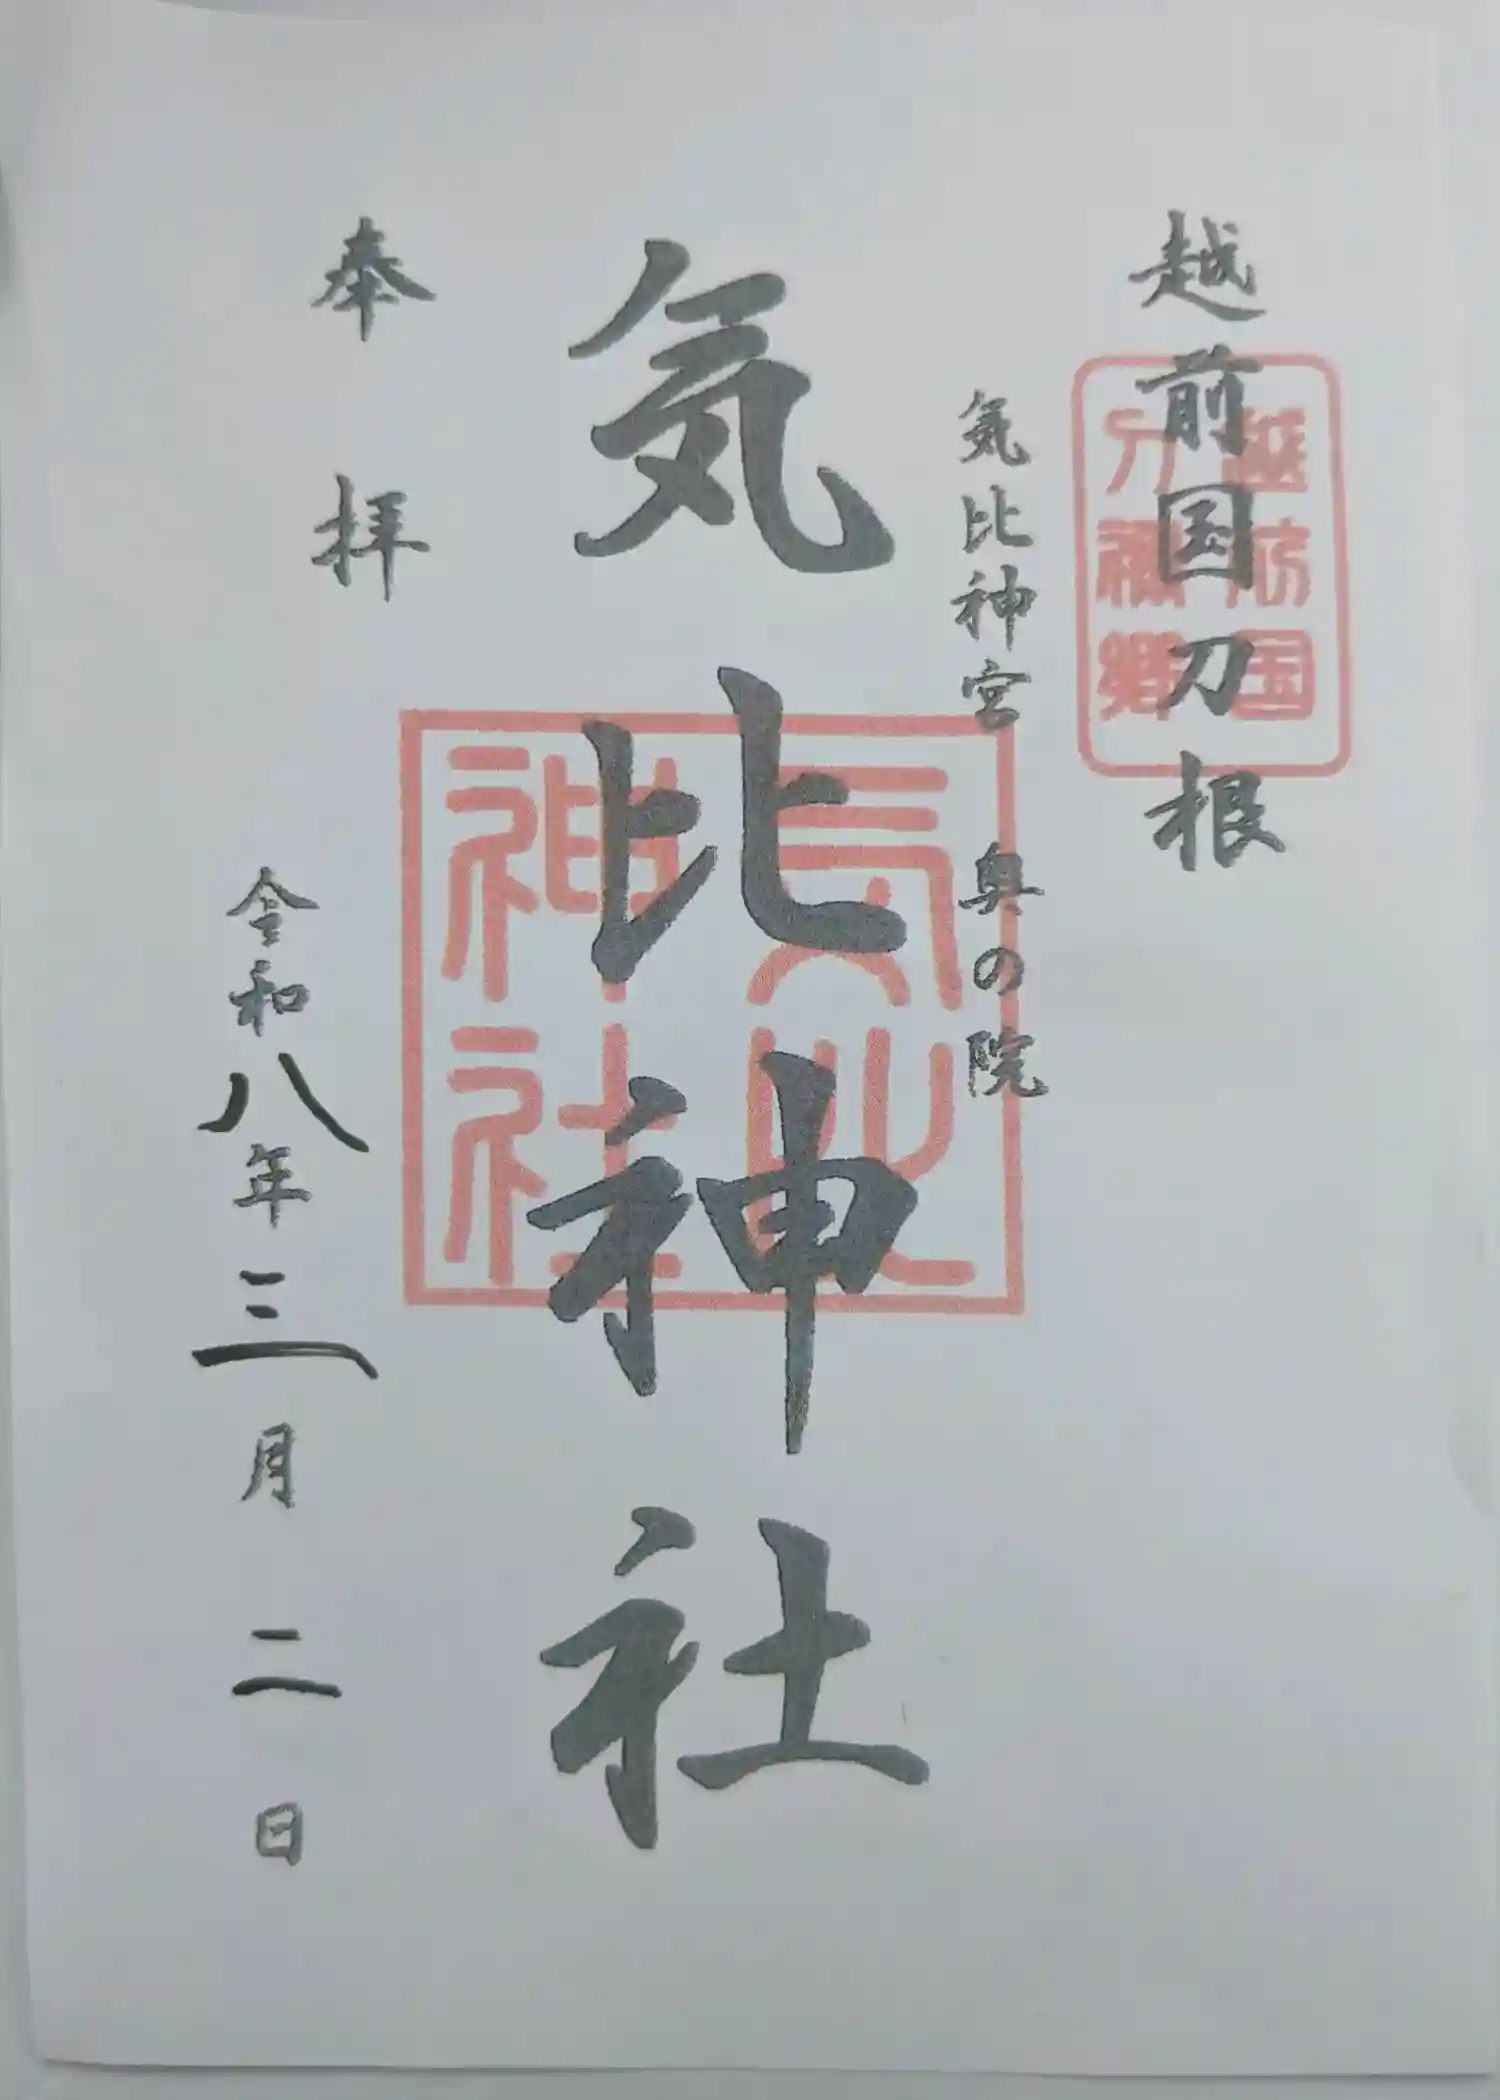 越前国刀根
気比神宮 奥の院
気比神社
奉拝
令和八年三月二日
越前国
気比
神社